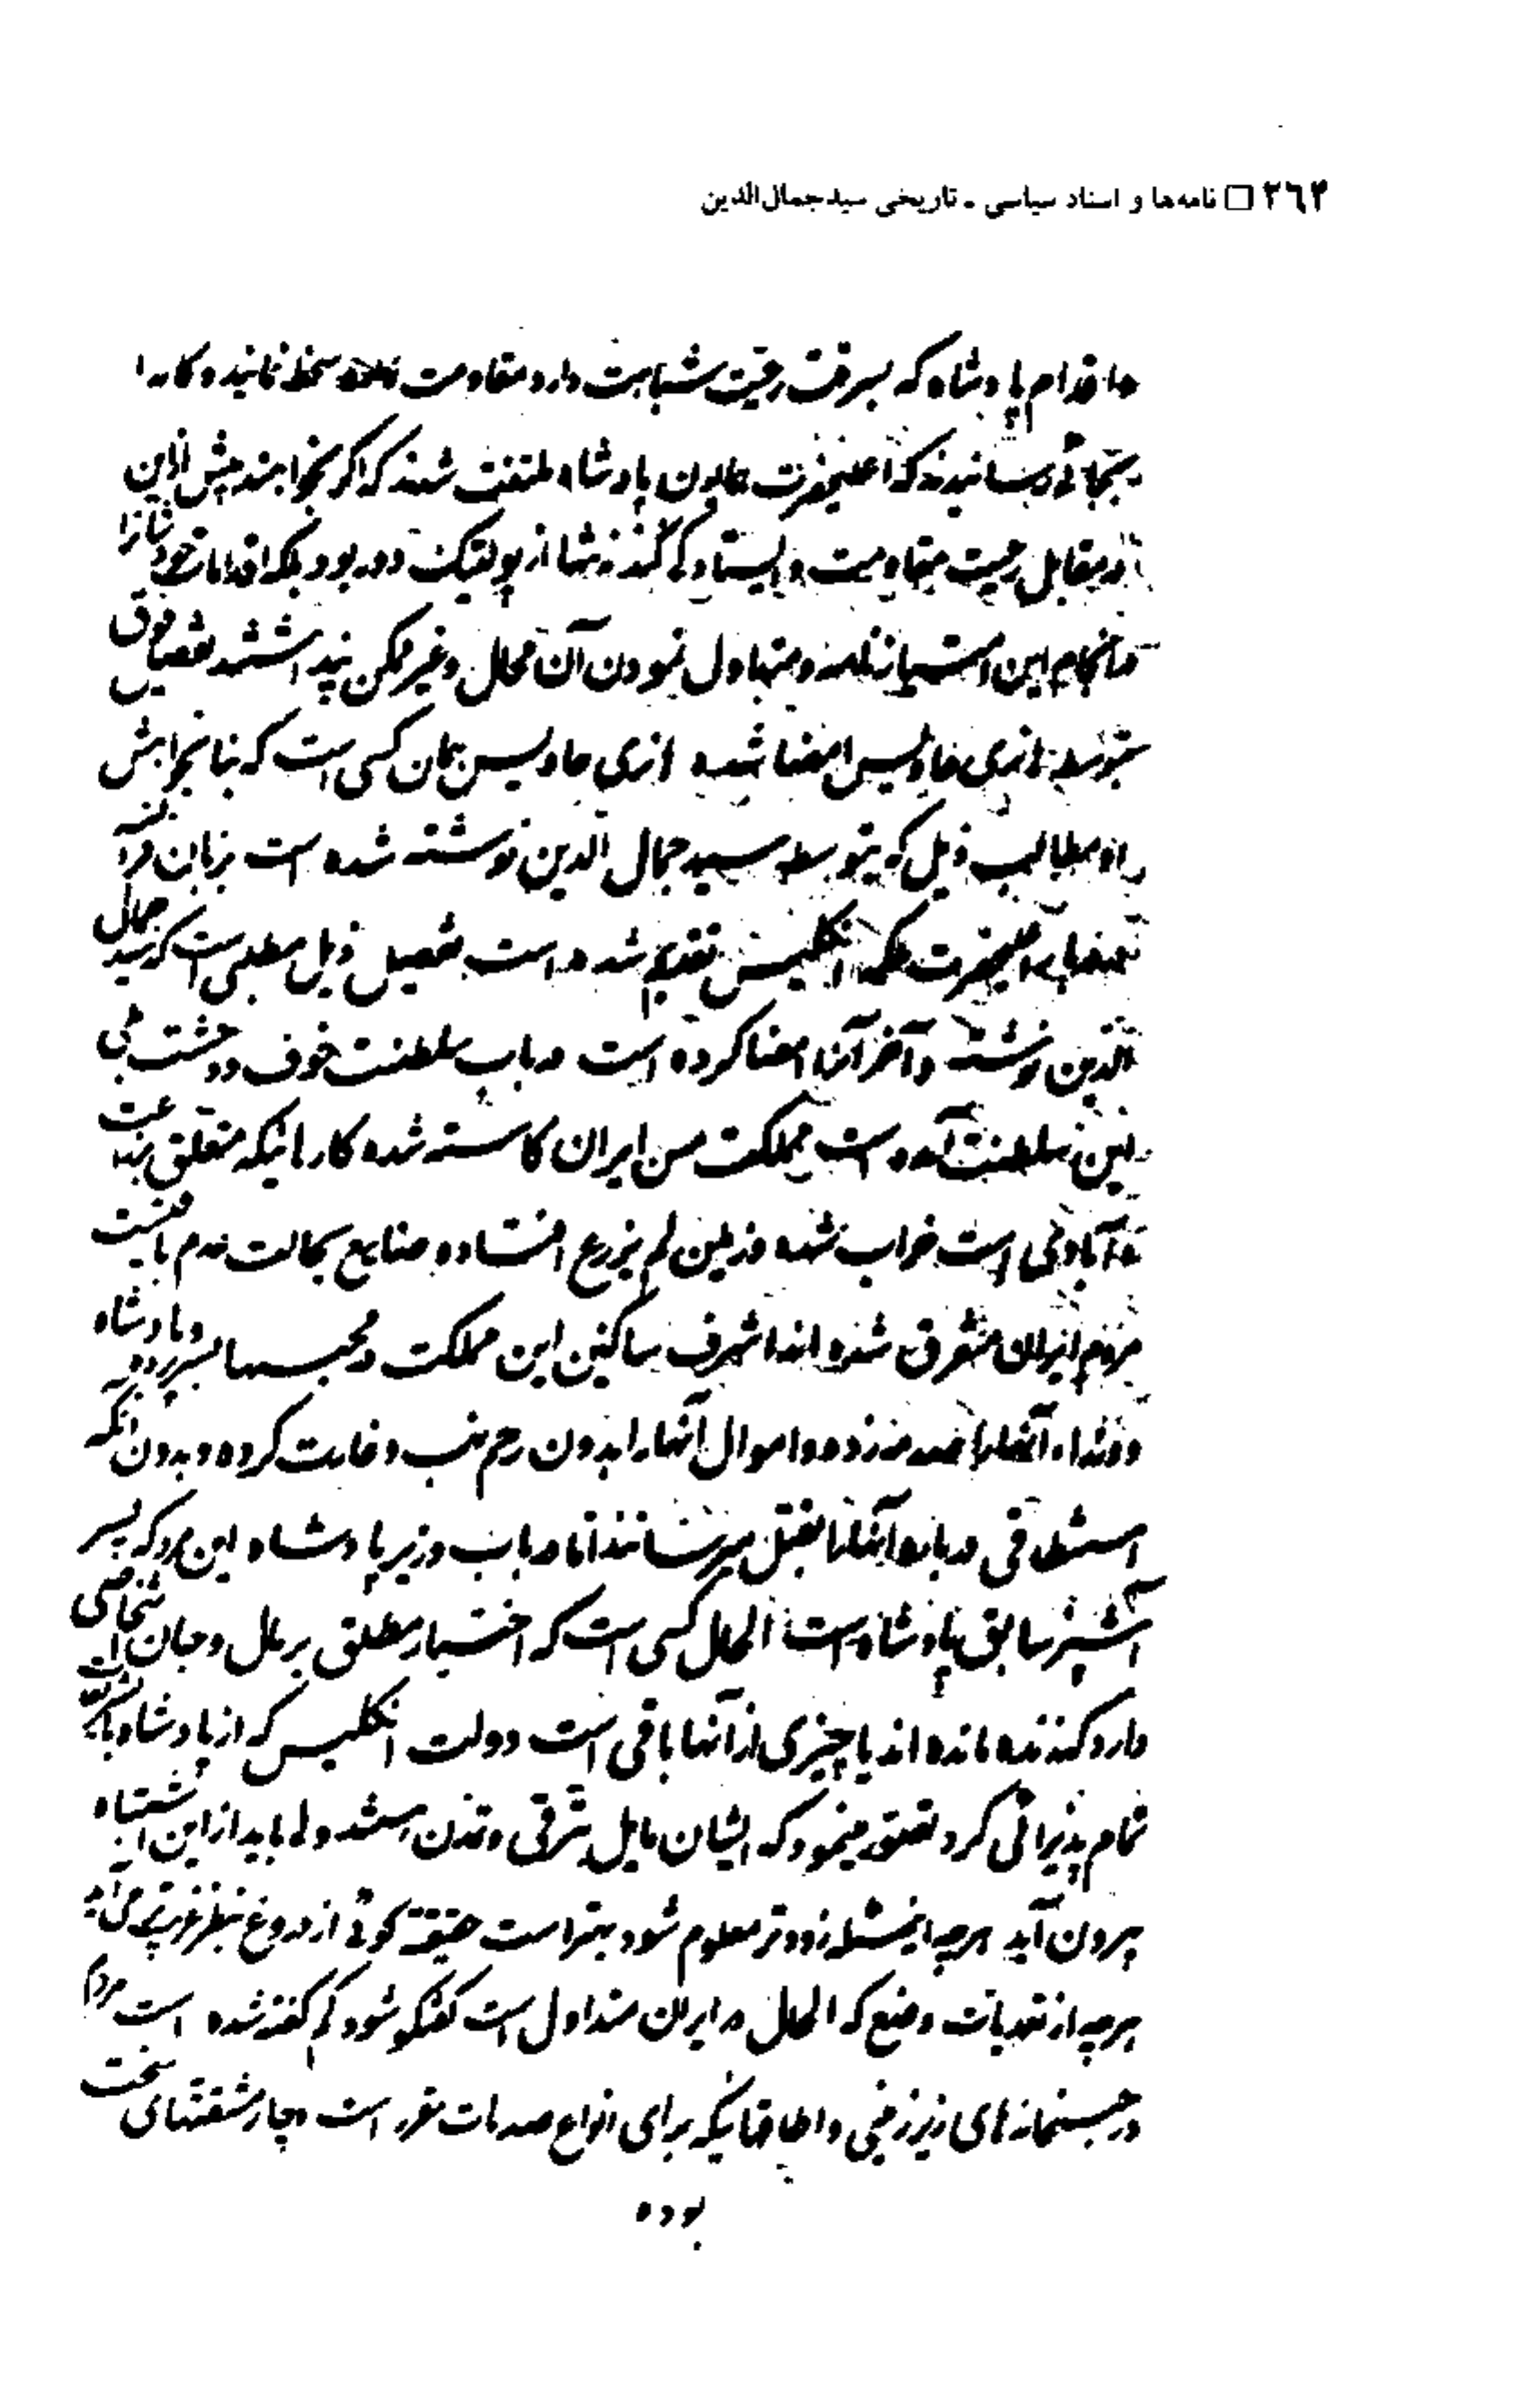 ۲۶۲ □ نامه‌ها و اسناد سیاسی - تاریخی سیدجمال‌الدین
اقدام پادشاه که بسرقت رعیت شباهت دارد مقاومت سخط نمایند و کار را
بجائی رسانیدند که اعلیحضرت همایون پادشاه ملتفت شدند که اگر بخواهند پیش ازین
در مقابل رعیت مقاومت و ایستادگی کنند نه تنها از پولتیک دور بود بلکه اقدامات خود شانرا
در انجام این امتیازنامه و متداول نمودن آن محال و غیر ممکن پنداشتند تفصیل فوق
بتوسط اندی ماولیس امضا شده اندی ماولیس همان کسی است که بنا بخواهش
او مطالب ذیل که بتوسط سید جمال الدین نوشته شده است بزبان فرانسه
اعلیحضرت ملکه انگلیس تقدیم شده است بتفصیل ذیل مطلبی است که سید جمال
الدین نوشته و آخر آنرا امضا کرده است در باب سلطنت خوف و وحشت که
این سلطنت آمده است مملکت من ایران کاسته شده کارهائیکه متعلق بزراعت
و آبادی است خراب شده و زمین لم یزرع افتاده و صنایع بحالت عدم باقیست
مردم ایران متفرق شده اند اشرف ساکنین این مملکت در محبسها بسر برده و پادشاه
و وزراء آنها را صدمه زده و اموال آنها را بدون رحم نهب و غارت کرده و بدون آنکه
استنطاقی در باره آنها بقتل میرسانند اما در باب وزیر پادشاه این مرد که پسر
آشپز سابق پادشاه است الحال کسی است که اختیار مطلق بر مال و جان اشخاصی
دارد که زنده مانده اند یا چیزی از آنها باقی است دولت انگلیس که از پادشاه با
تمام پذیرائی کرد تصور مینمود که ایشان مایل بترقی و تمدن هستند ولی باید از این اشتباه
بیرون آید هرچه این مسئله زودتر معلوم شود بهتر است حقیقة گوئی از دروغ بنظر غریب‌تر می‌آید
هرچه از تعدیات و وضع که الحال در ایران متداول است گفتگو شود کم گفته شده است مردم
در حبسخانه‌های زیرزمینی و اطاقهائیکه برای انواع صدمات مقرر است دچار مشقتهای سخت
بوده